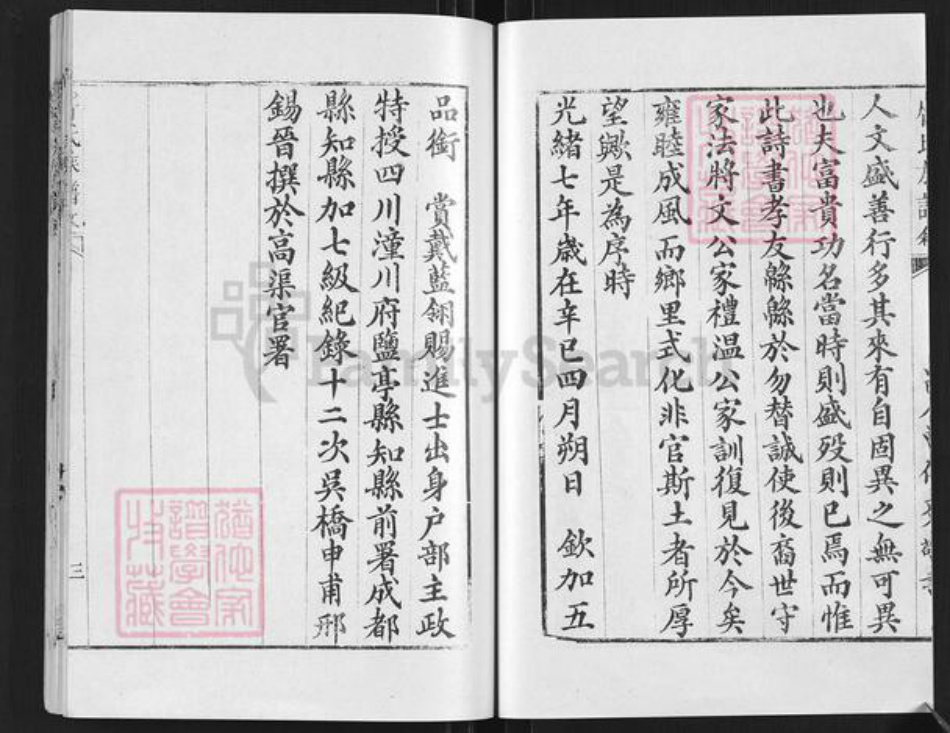 人文盛善行多其來有自固異之無可異
也夫富貴功名當時則盛歿則已焉而惟
此詩書孝友緜緜於勿替誠使後裔世守
家法將文公家禮溫公家訓復見於今矣
雍睦成風而鄉里式化非官斯土者所厚
望歟是為序時
光緒七年歲在辛巳四月朔日　欽加五
品銜　賞戴藍翎賜進士出身户部主政
特授四川潼川府鹽亭縣知縣前署成都
縣知縣加七級紀錄十二次吳橋申甫邢
錫晉撰於高渠官署
三
譜學會
收藏
FamilySearch